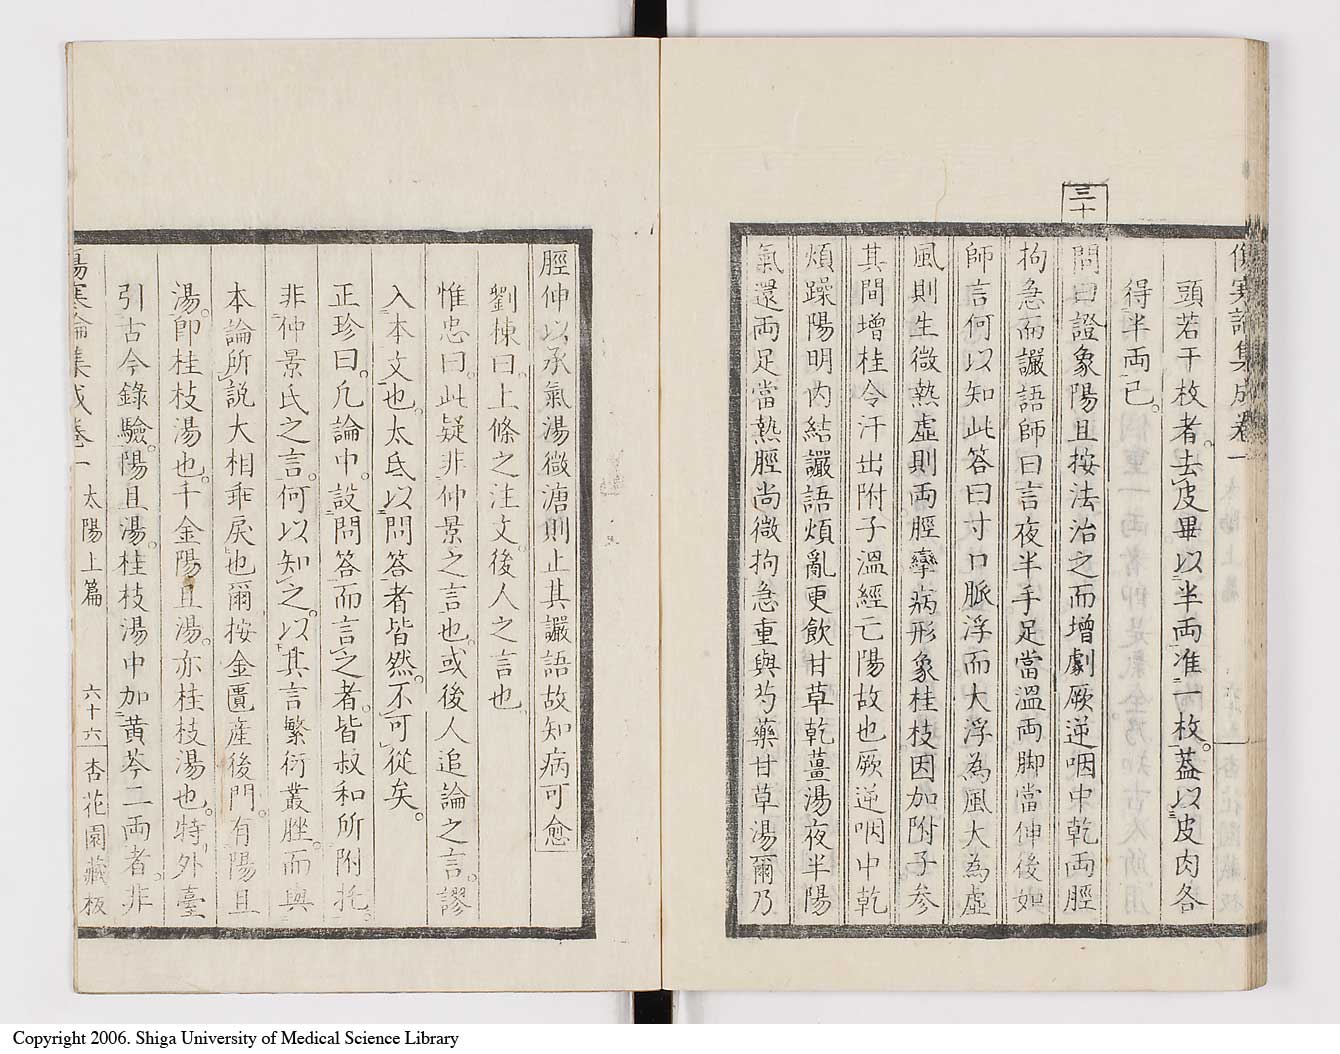 傷寒論集成卷一
頭若干枚者。去皮畢以半兩准一枚。蓋以皮肉各
得半兩已。
三十
問曰證象陽旦按法治之而增劇厥逆咽中乾兩脛
拘急而讝語師曰言夜半手足當溫兩脚當伸後如
師言何以知此答曰寸口脈浮而大浮為風大為虛
風則生微熱虛則兩脛攣病形象桂枝因加附子參
其間增桂令汗出附子溫經亡陽故也厥逆咽中乾
煩躁陽明內結讝語煩亂更飲甘草乾薑湯夜半陽
氣還兩足當熱脛尚微拘急重與芍藥甘草湯爾乃
脛伸以承氣湯微溏則止其讝語故知病可愈
劉棟曰。上條之注文。後人之言也。
惟忠曰。此疑非仲景之言也。或後人追論之言。謬
入本文也。太氐以問答者皆然。不可從矣。
正珍曰。凡論中。設問答而言之者。皆叔和所附托。
非仲景氏之言。何以知之。以其言繁衍叢脞。而與
本論所說大相乖戾也爾按金匱產後門。有陽旦
湯。即桂枝湯也。千金陽旦湯。亦桂枝湯也。特外臺
引古今錄驗。陽旦湯。桂枝湯中加黃芩二兩者。非
傷寒論集成卷一 太陽上篇 六十六 杏花園藏板
Copyright 2006. Shiga University of Medical Science Library